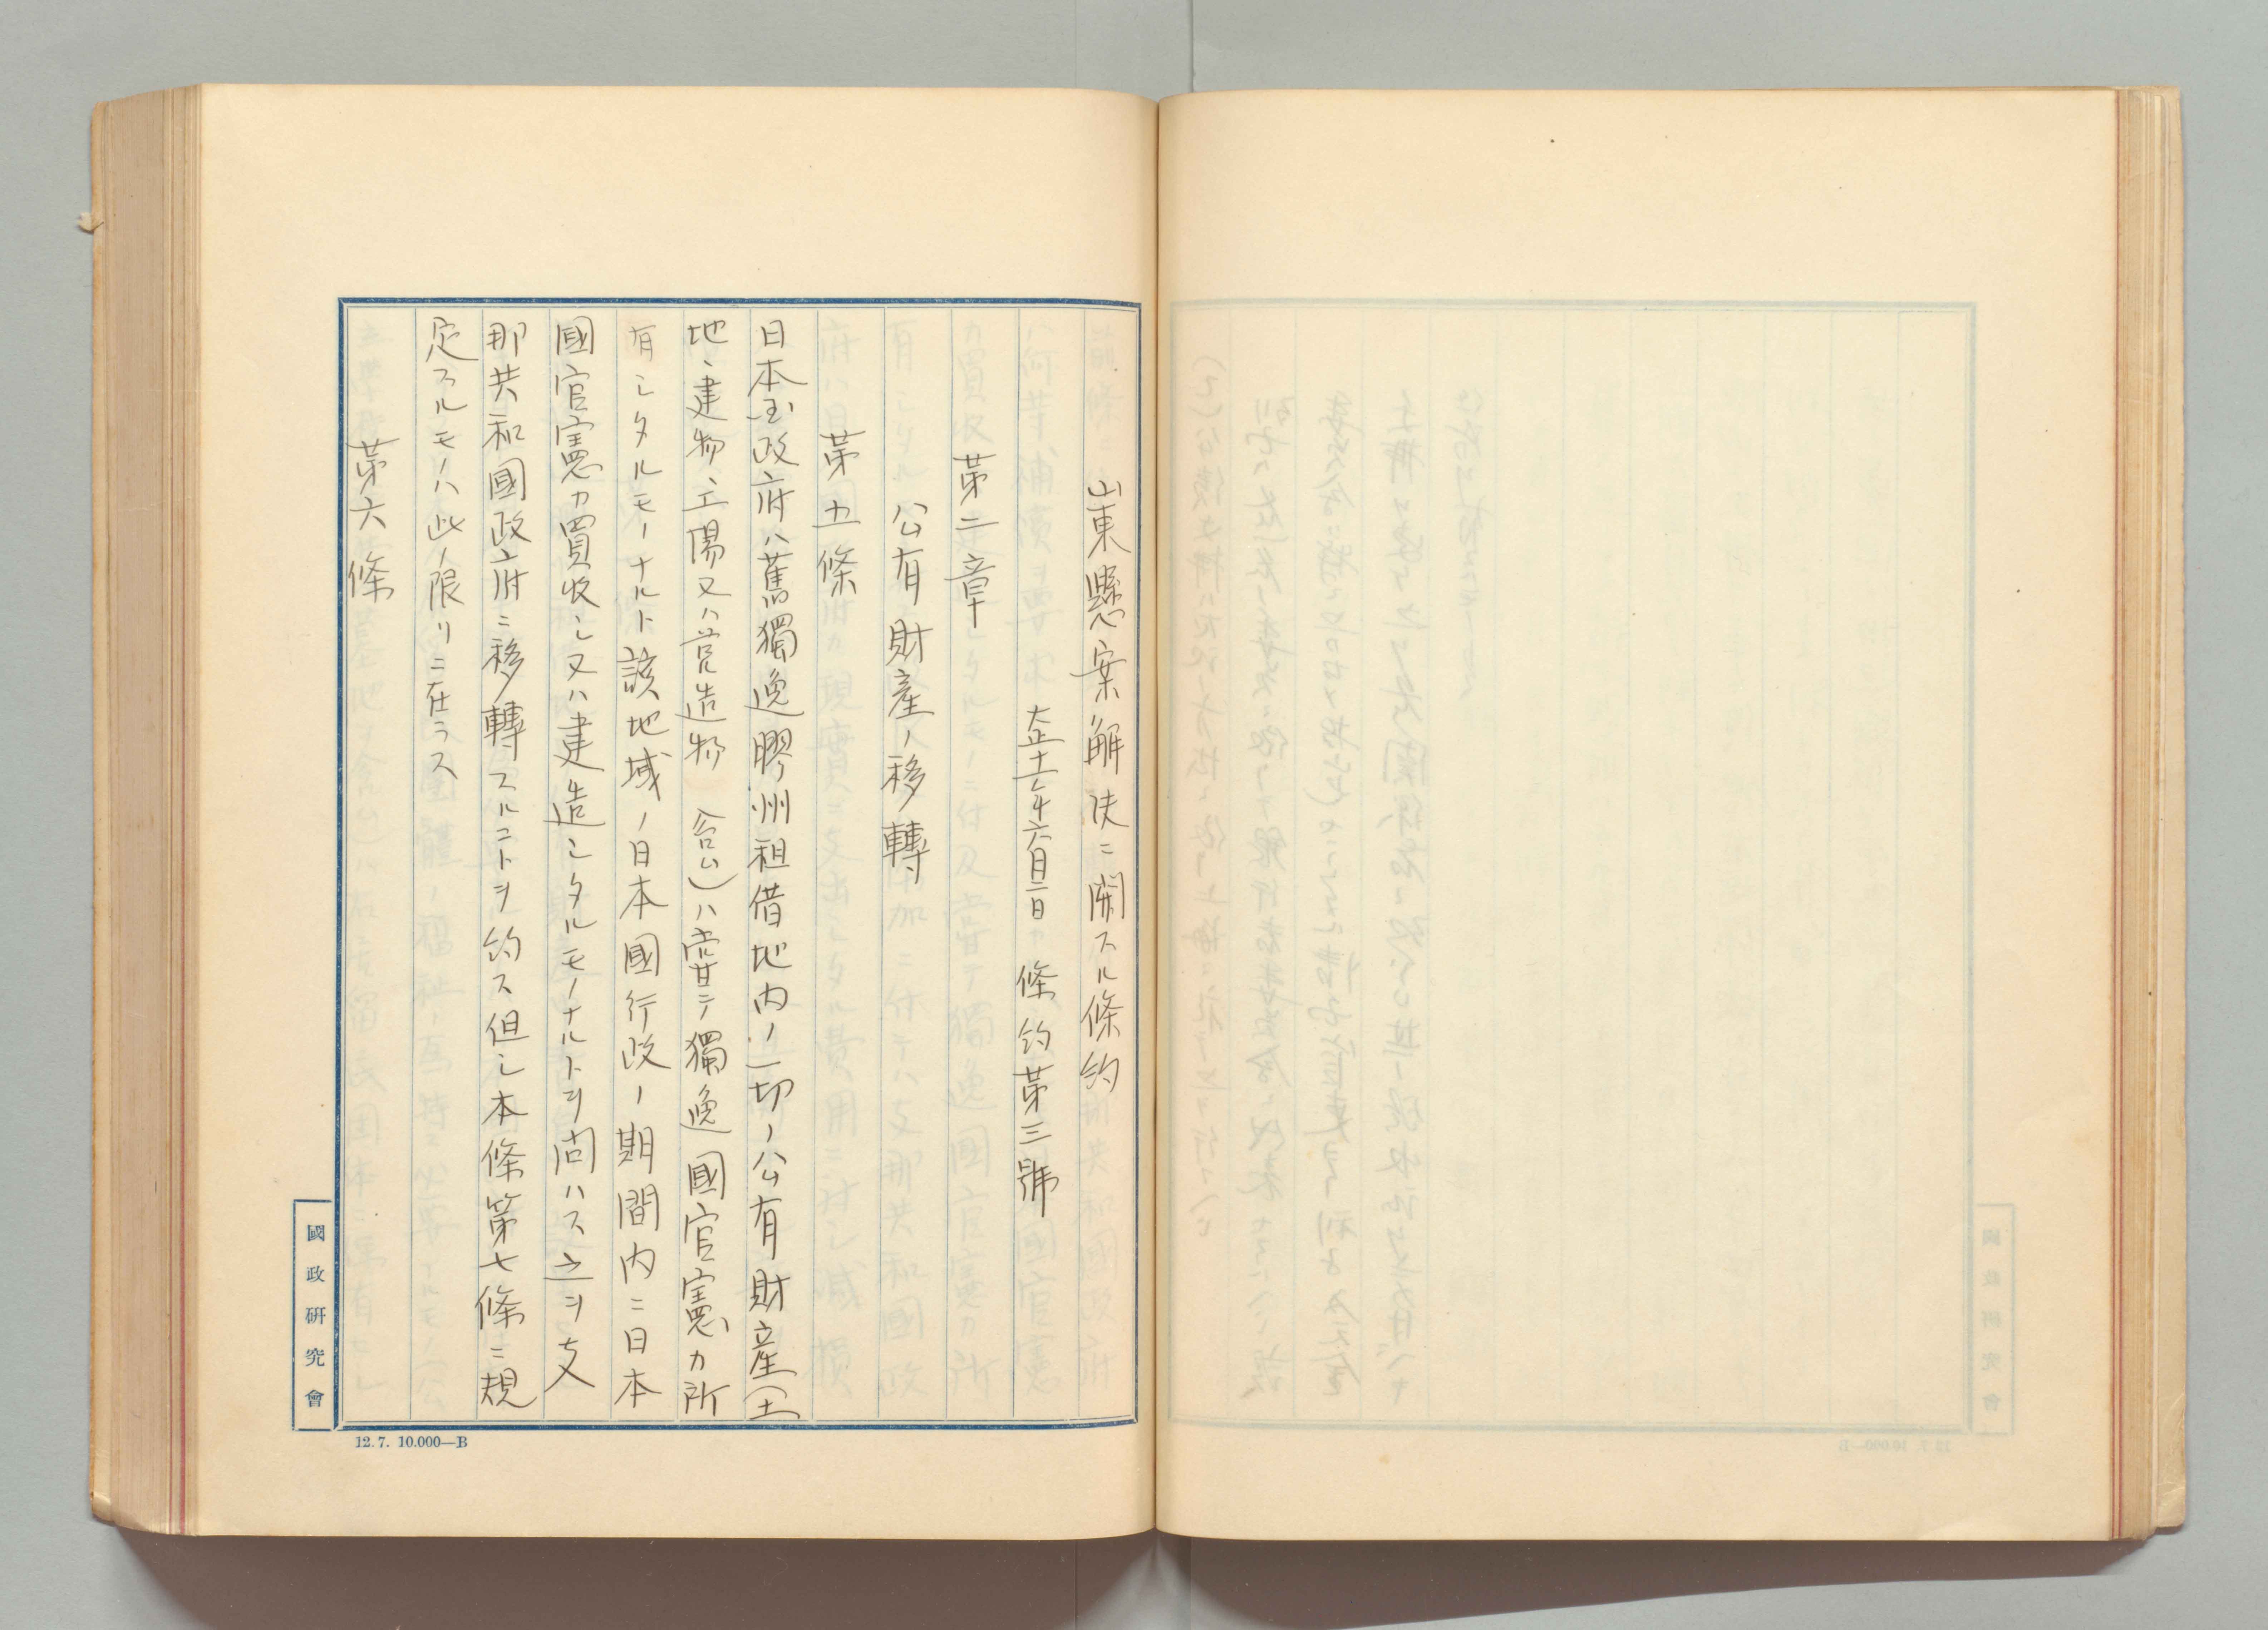 山東懸案解决ニ関スル條約
大正十一年六月二日　條約第三號
第二章
公有財産ノ移轉
第五條
日本国政府ハ舊獨逸膠州租借地内ノ一切ノ公有財産（土
地、建物、工場又ハ営造物　含ム）ハ嘗テ獨逸國官憲カ所
有シタルモノナルト該地域ノ日本國行政ノ期間内ニ日本
國官憲カ買收シ又ハ建造シタルモノナルトヲ問ハス之ヲ支
那共和國政府ニ移轉スルコトヲ約ス但シ本條第七條ニ規
定スルモノハ此ノ限リニ在ラス
第六條
國政研究會
12.7. 10.000—B